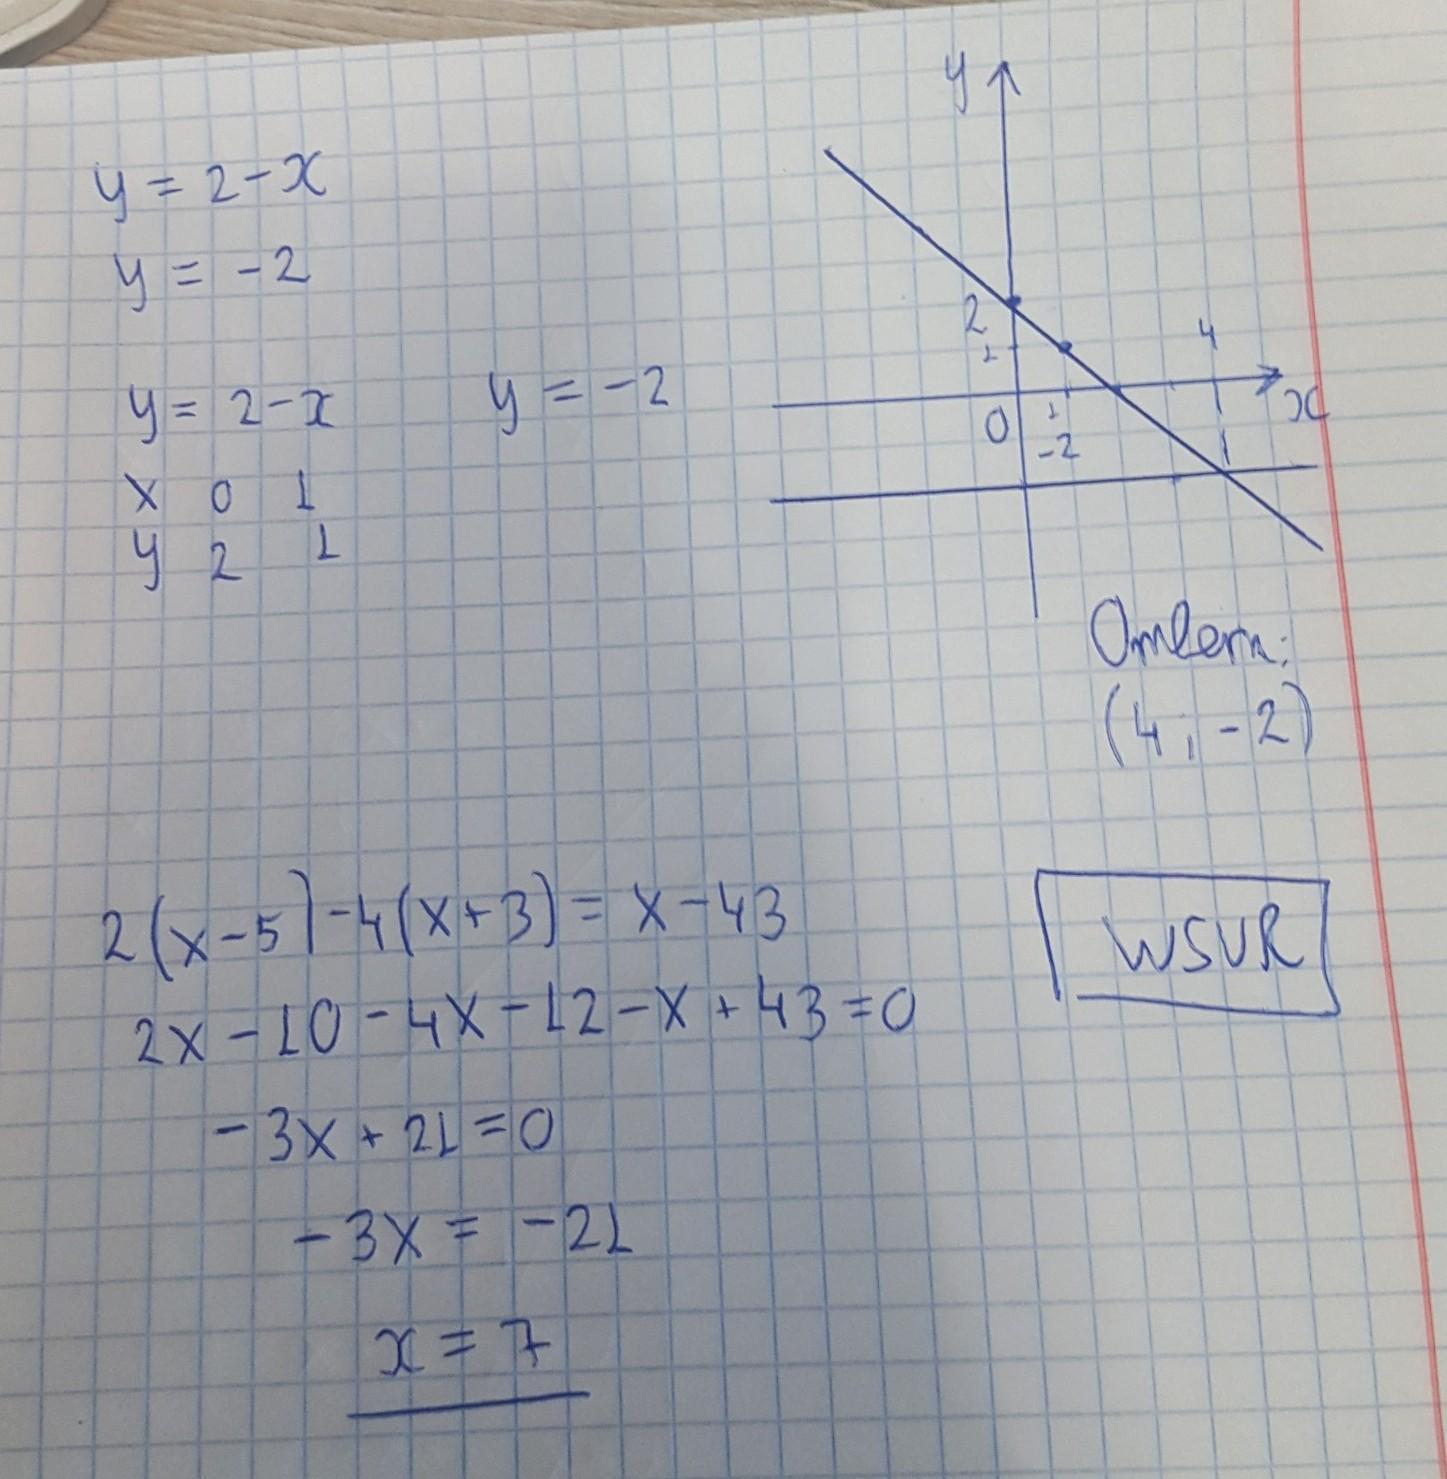 y = 2 - x
y = -2
y = 2 - x
x 0 1
y 2 1
y = -2
y
2
1
4
x
0
1
-2
Ответ:
(4; -2)
2(x-5)-4(x+3) = x-43
2x-10-4x-12-x+43=0
-3x+21=0
-3x = -21
x = 7
WSVR